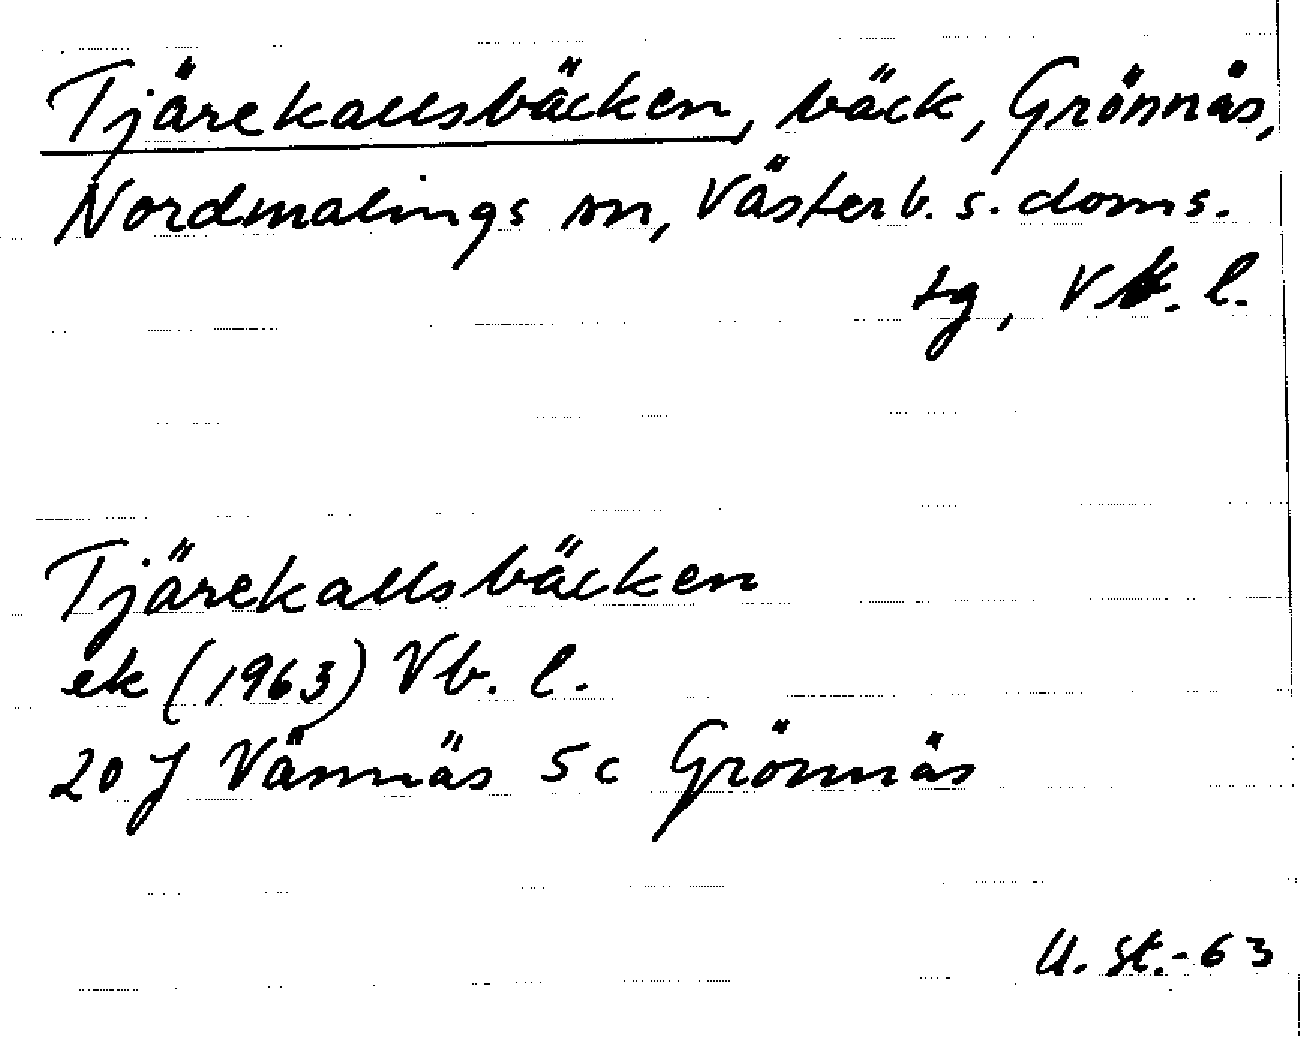 Tjärekallsbäcken, bäck, Grönnäs,
Nordmalings sn, Västerb. s. doms.
tg, Vb. l.
Tjärekallsbäcken
ek (1963) Vb. l.
20 J Vännäs 5 c Grönnäs
U. St.-63